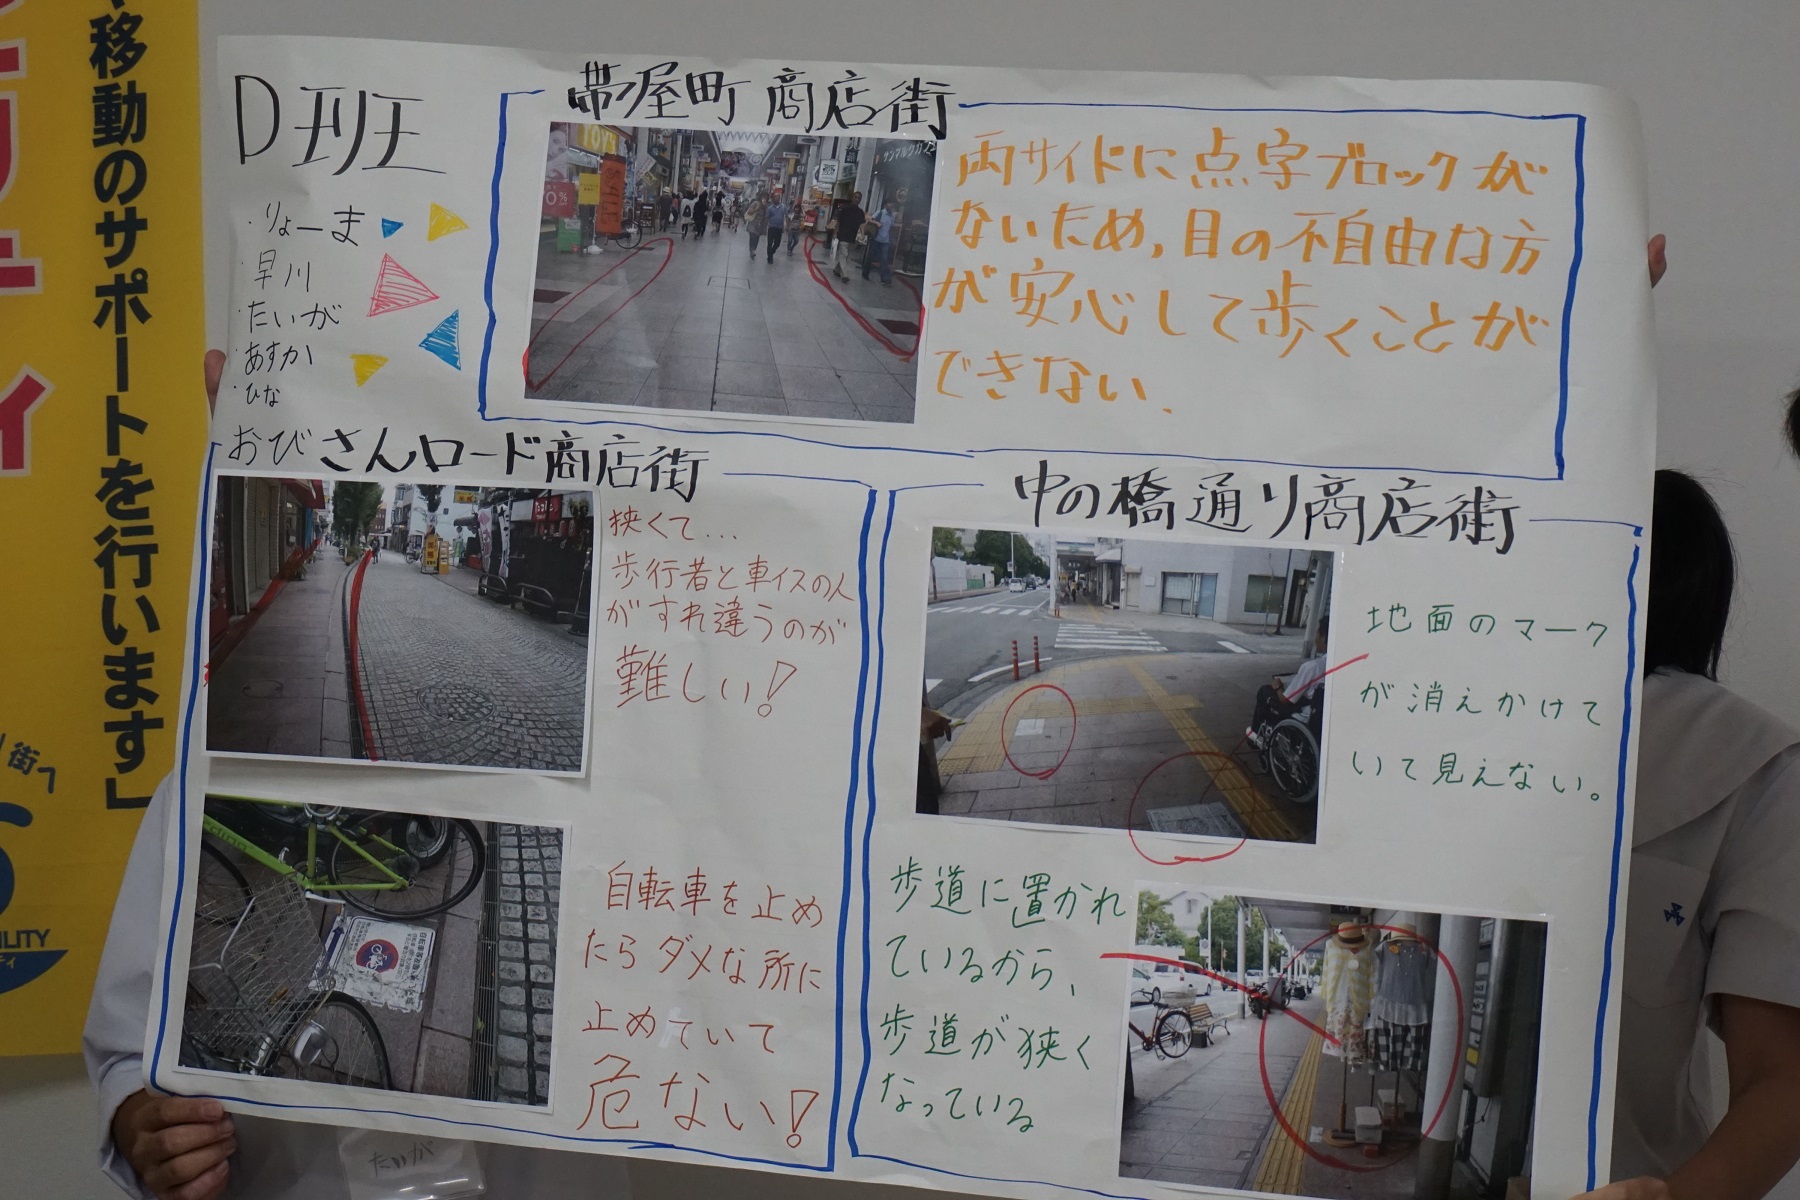 移動のサポートを行います」
D班
・りょーま
・早川
・たいが
・あすか
・ひな
帯屋町商店街
両サイドに点字ブロックが
ないため,目の不自由な方
が安心して歩くことが
できない.
おびさんロード商店街
狭くて…
歩行者と車イスの人
がすれ違うのが
難しい!
自転車を止め
たらダメな所に
止めていて
危ない!
中の橋通り商店街
地面のマーク
が消えかけて
いて見えない。
歩道に置かれ
ているから、
歩道が狭く
なっている
たいが
街へ
ILITY
ティ
TOY'S
SALE
サンマルクカフェ